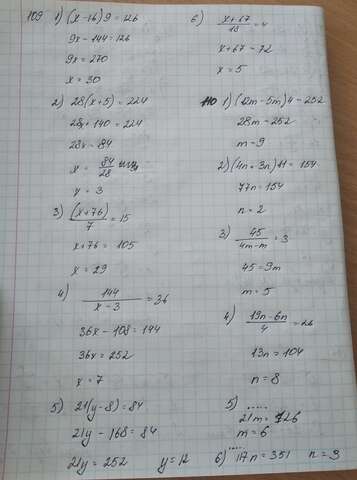 109 1) (x-16) 9 = 126
9x - 144 = 126
9x = 270
x = 30
2) 28(x+5) = 224
28x + 140 = 224
28x = 84
x = 84/28
x = 3
3) (x+76)/7 = 15
x+76 = 105
x = 29
4) 144/(x-3) = 36
36x - 108 = 144
36x = 252
x = 7
5) 21(y-8) = 84
21y - 168 = 84
21y = 252 y = 12
6) (x+67)/18 = 4
x+67 = 72
x = 5
110 1) (12m-5m) 4 = 252
28m = 252
m = 9
2) (4n+3n) 11 = 154
77n = 154
n = 2
3) 45/(4m-m) = 3
45 = 9m
m = 5
4) (19n-6n)/4 = 26
13n = 104
n = 8
5) .....
21m = 126
m = 6
6) .... 117n = 351 n = 3